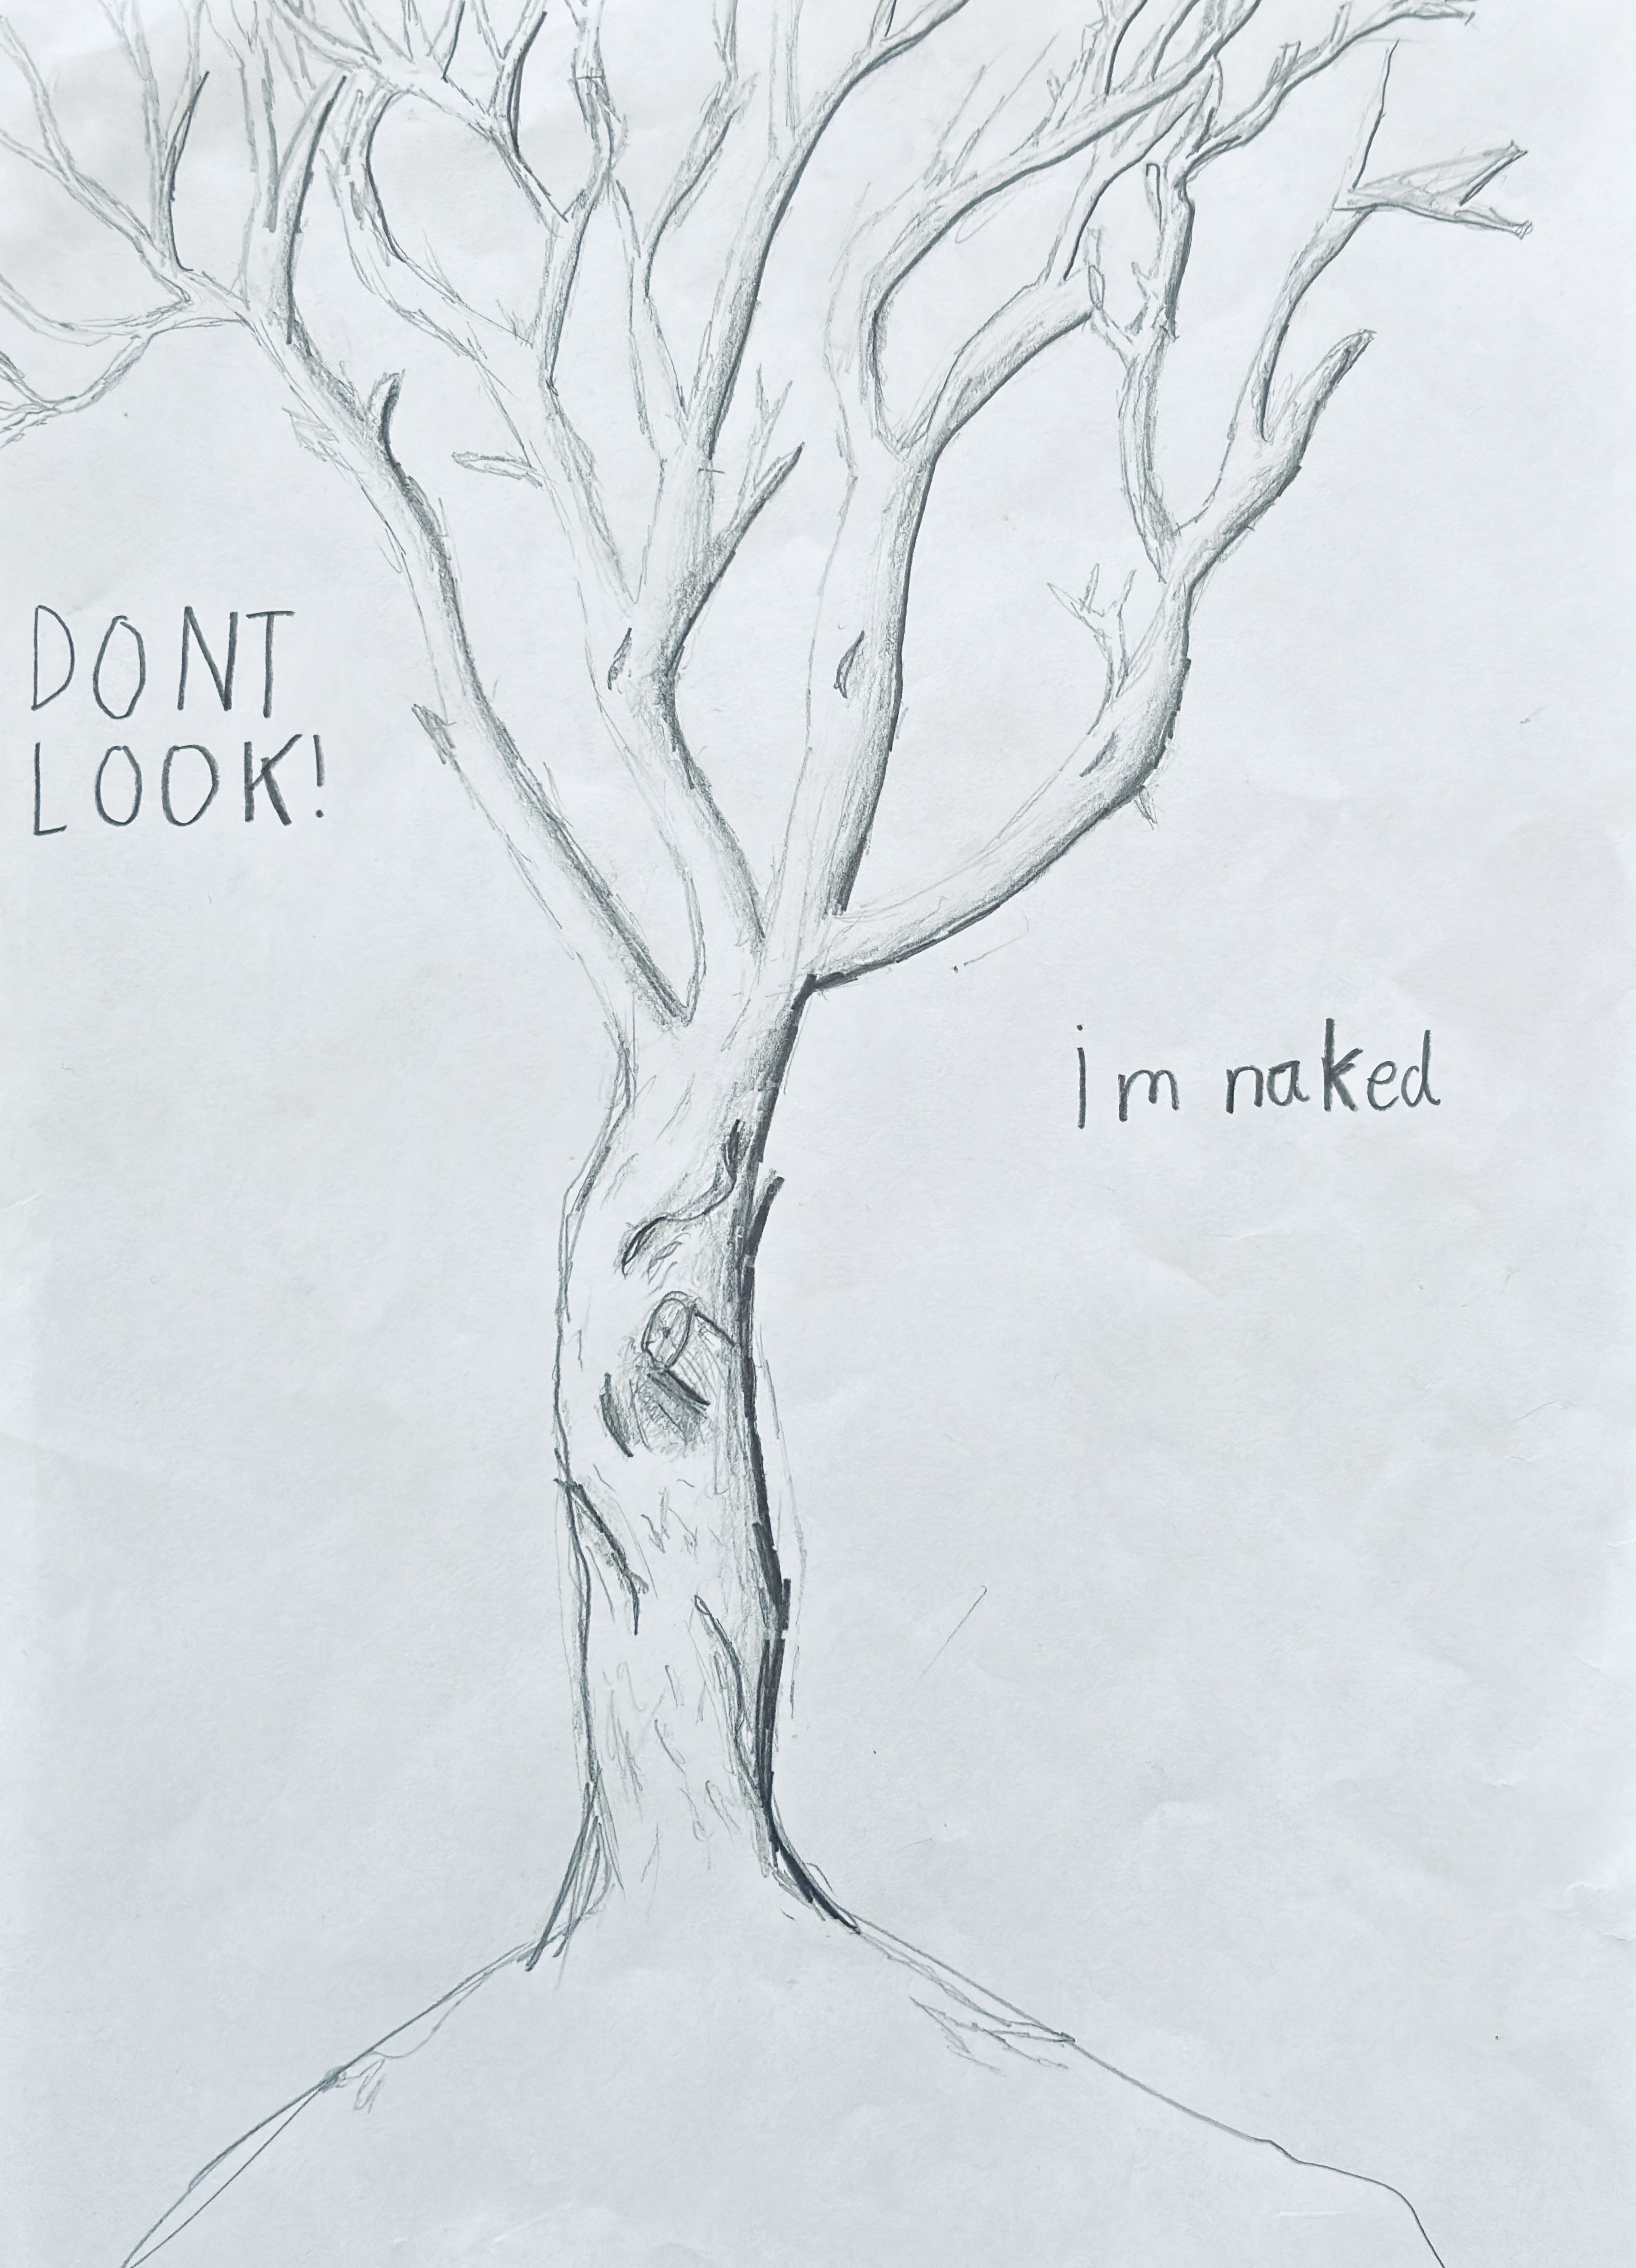 DONT
LOOK!
im naked